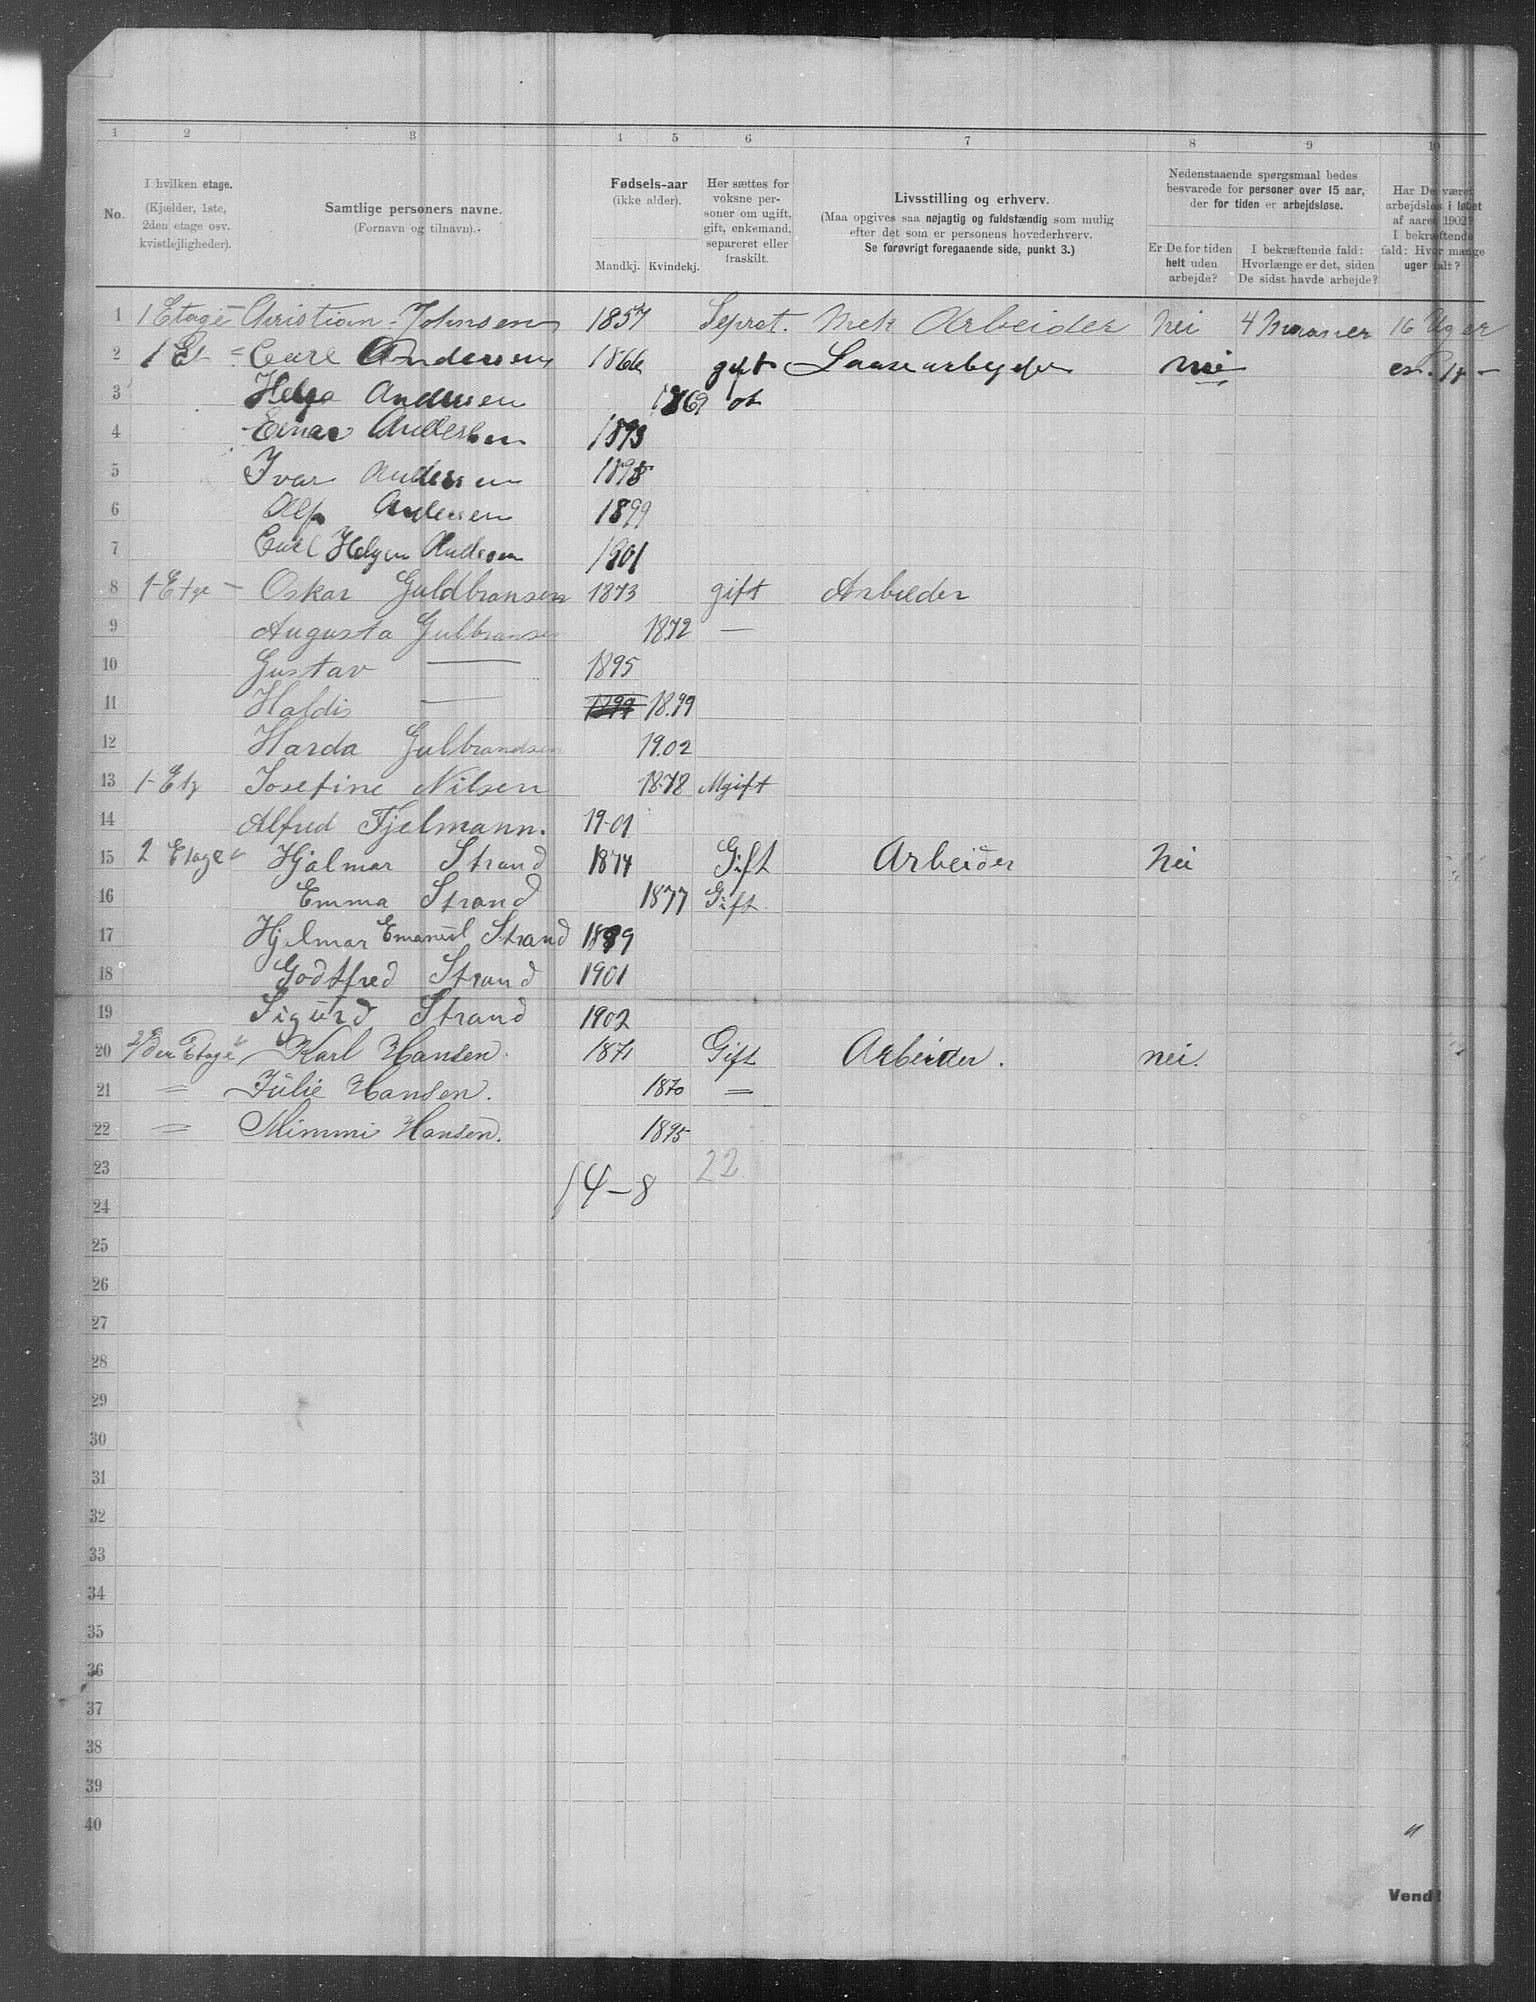 1 2 3 4 5 6 7 8 9 10
No.
I hvilken etage.
(Kjælder, 1ste,
2den etage osv.
kvistlejligheder).
Samtlige personers navne.
(Fornavn og tilnavn).
Fødsels-aar
(ikke alder).
Mandkj. Kvindekj.
Her sættes for
voksne per-
soner om ugift,
gift, enkemand,
separeret eller
fraskilt.
Livsstilling og erhverv.
(Maa opgives saa nøjagtig og fuldstændig som mulig
efter det som er personens hovederhverv.
Se forøvrigt foregaaende side, punkt 3.)
Nedenstaaende spørgsmaal bedes
besvarede for personer over 15 aar,
der for tiden er arbejdsløse.
Er De for tiden
helt uden
arbejde?
I bekræftende fald:
Hvorlænge er det, siden
De sidst havde arbejde?
Har De været
arbejdsløs i løbet
af aaret 1902?
I bekræftende
fald: Hvor mange
uger ialt?
1 1 Etage Christian Johnsen 1857 Seprat. Mek Arbeider Nei 4 16 Uger
2 1 Et Carl Andersen 1866 gift nei
3 Helga Andersen 1869
4 Einar Andersen 1893
5 Ivar Andersen 1895
6 Alf Andersen 1899
7 Carl Helgen Andersen 1901
8 1-Etge — Oskar Guldbransen 1873 gift Arbeider
9 Augusta Gulbransen 1872 —
10 Gustav — 1895
11 Haldis — 1899 18.99
12 Harda Gulbrandsen 19.02
13 1-Etg Josefine Nilsen 1878 Ugift
14 Alfred Fjelmann. 19-01
15 2 Etage Hjalmar Strand 1874 Gift Arbeider Nei
16 Emma Strand 1877 Gift
17 Hjelmar Emanuel Strand 1899
18 Godtfred Strand 1901
19 Sigurd Strand 1902
20 2den Etage Karl Hansen. 1871 Gift Arbeider. nei.
21 = Julie Hansen. 1870 =
22 = Mimmi Hansen. 1895
23 22
24 14-8
25
26
27
28
29
30
31
32
33
34
35
36
37
38
39
40
Vend!